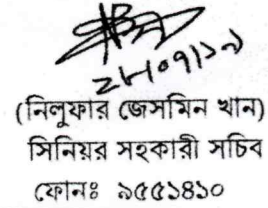 ২৮/০৭/১৯
(নিলুফার জেসমিন খান)
সিনিয়র সহকারী সচিব
ফোনঃ ৯৫৫১৪১০